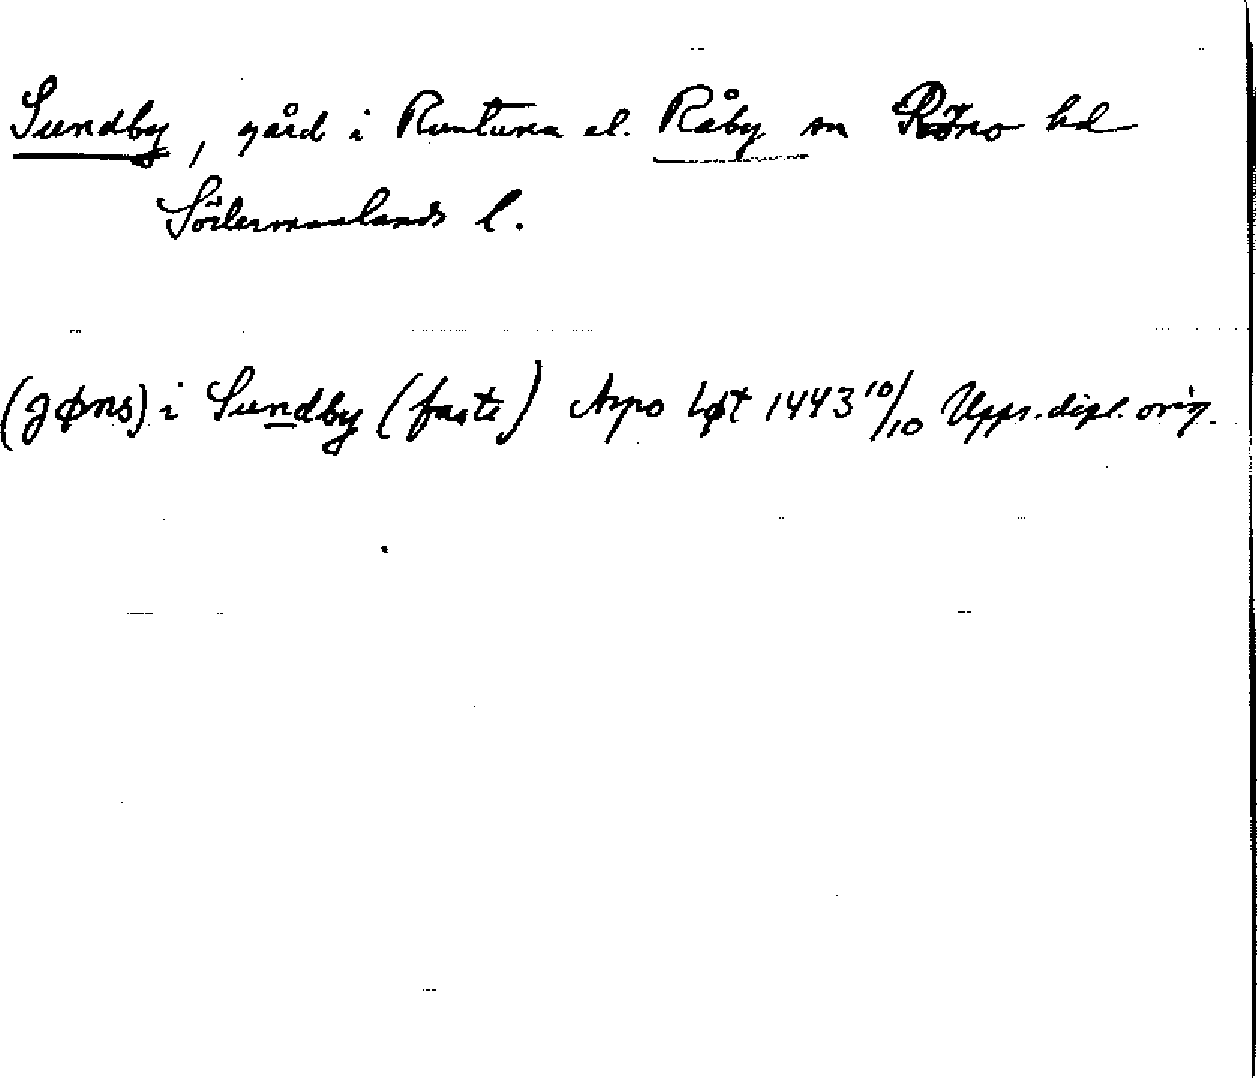 Sundby, gård i Runtuna el. Råby sn Rönö hd
Södermanlands l.
(jøns) i Sundby (faste) Arpo Løt 1443 10/10 Upps. dipl. orig.